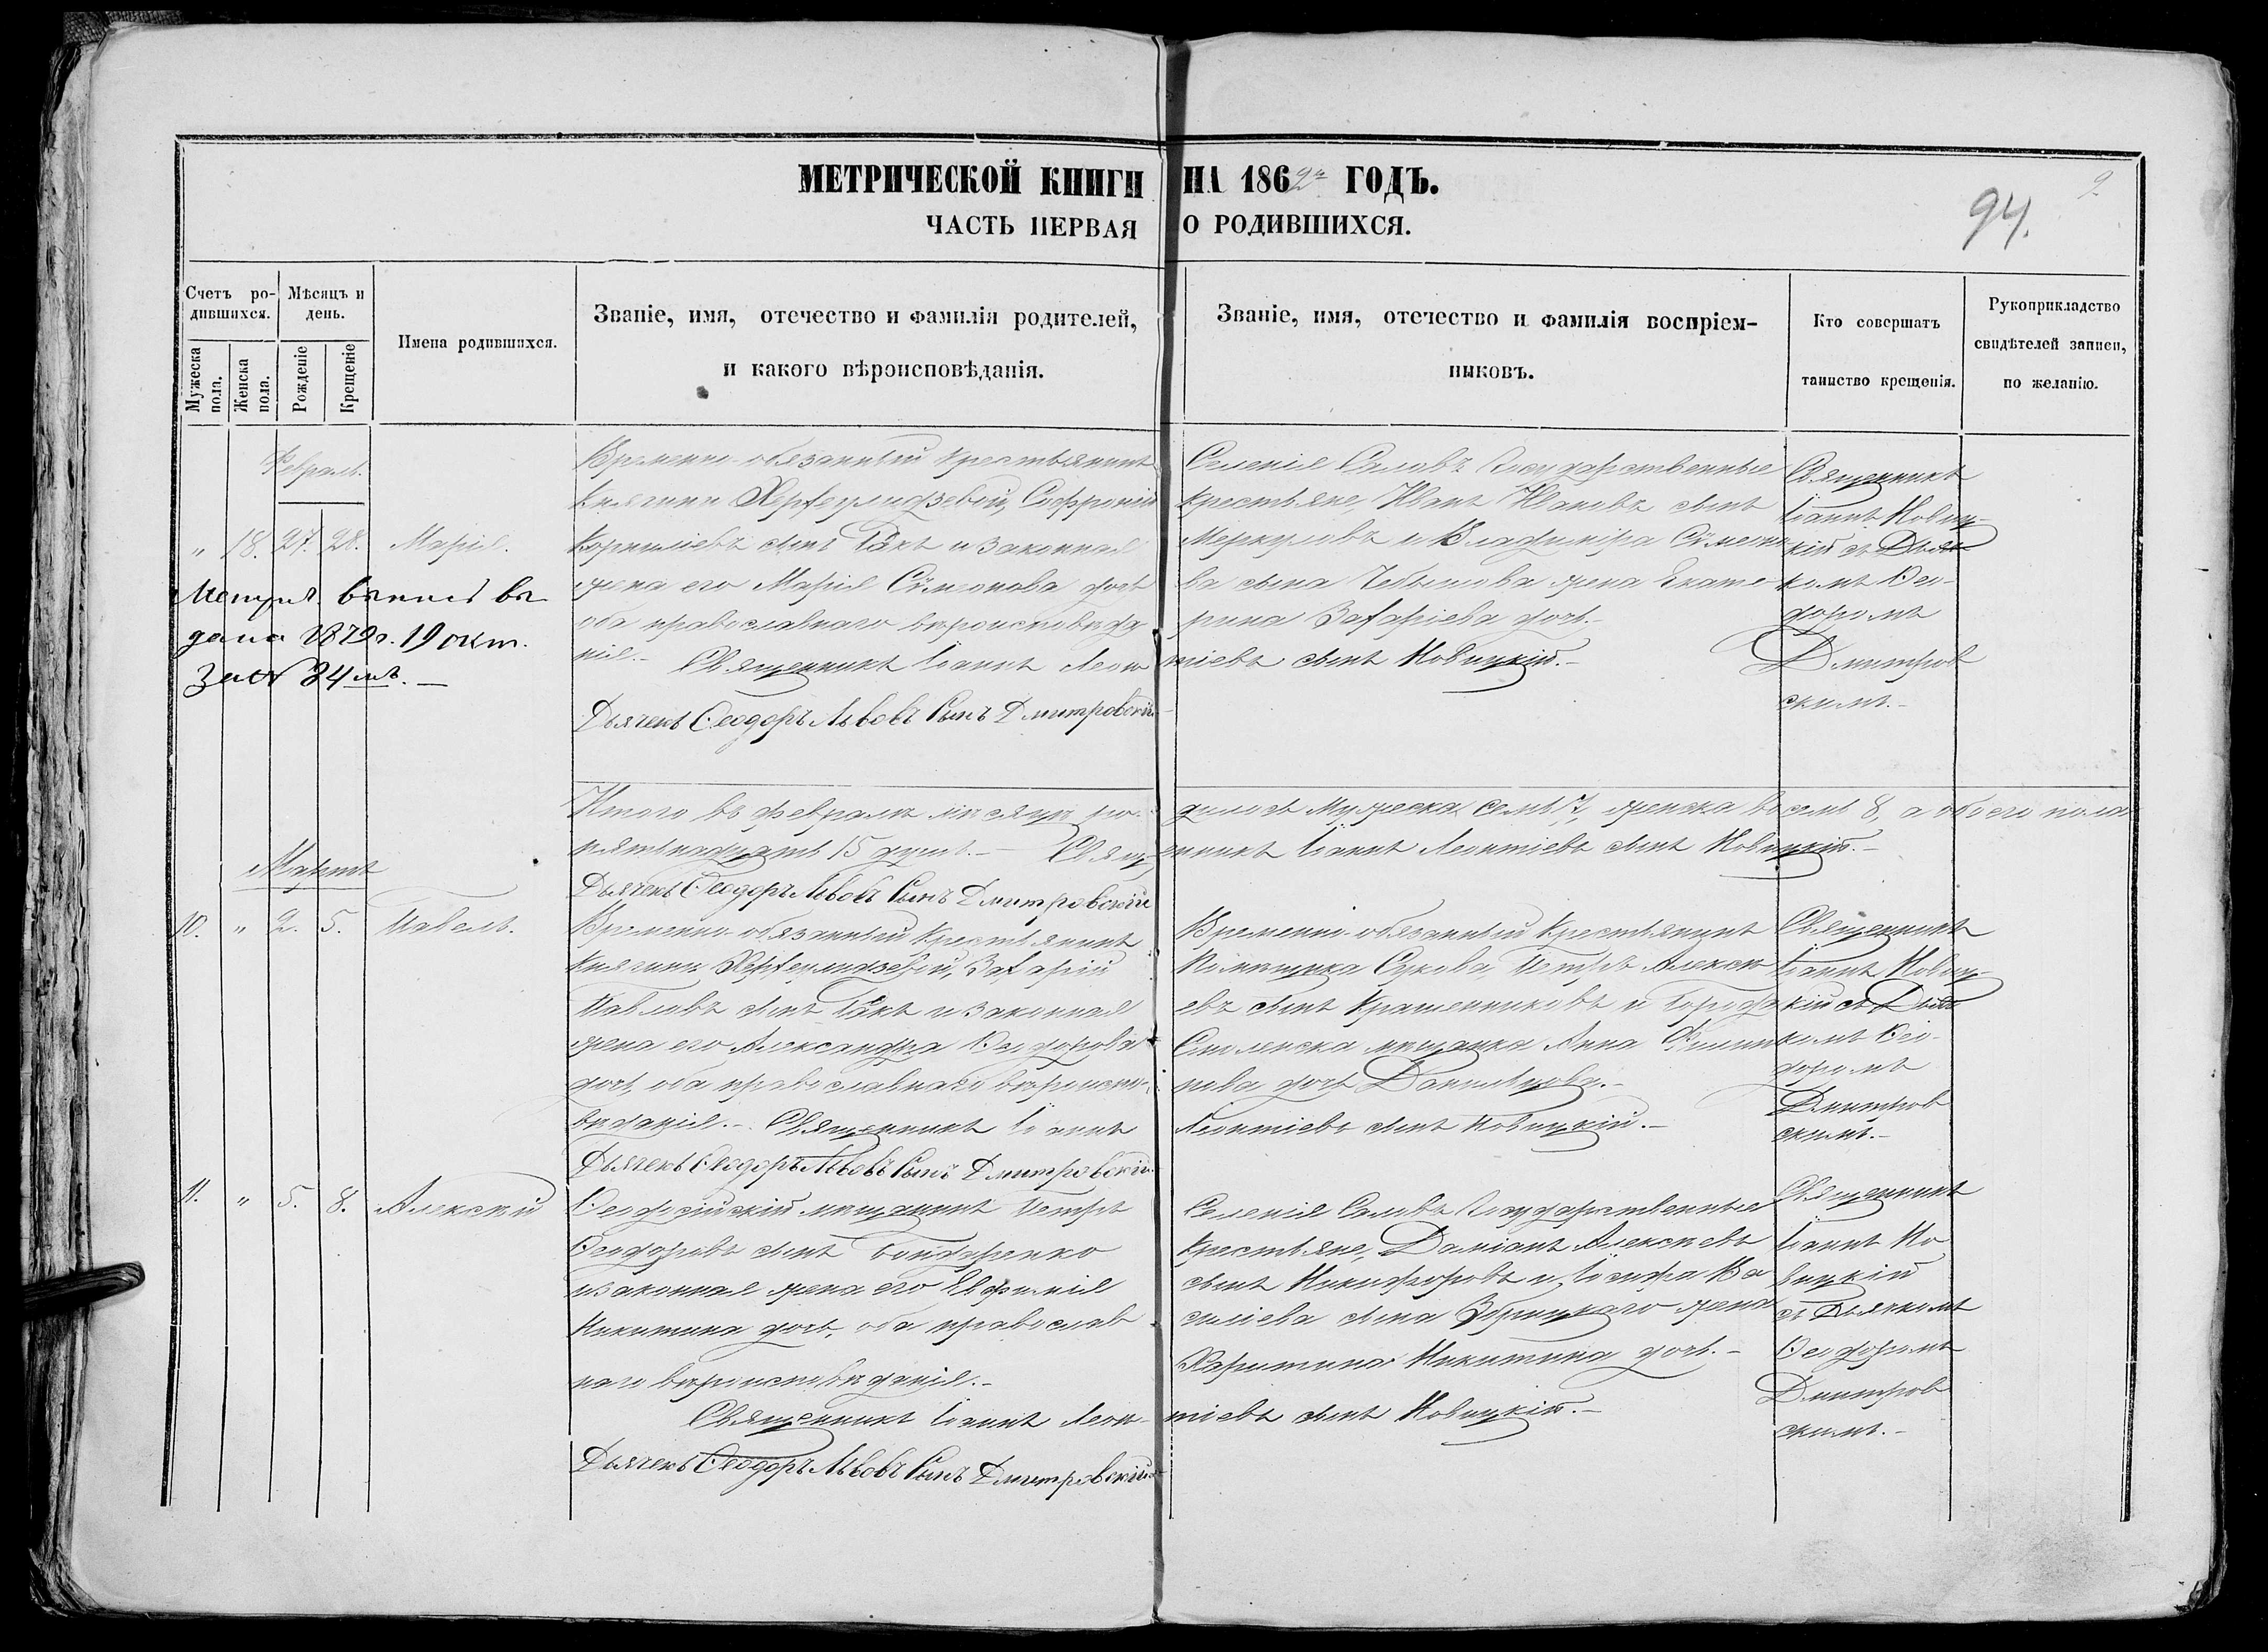 МЕТРИЧЕСКОЙ КНИГИ НА 1862й ГОДЪ.
ЧАСТЬ ПЕРВАЯ О РОДИВШИХСЯ.
94.
2.
Счетъ ро-
дившихся.
Мѣсяцъ и
день.
Мужеска
пола.
Женска
пола.
Рожденіе
Крещеніе
Имена родившихся.
Званіе, имя, отечество и фамилія родителей,
и какого вѣроисповѣданія.
Званіе, имя, отечество и фамилія воспріем-
никовъ.
Кто совершатъ
таинство крещенія.
Рукоприкладство
свидѣтелей записи,
по желанію.
Февраль.
" 18. 27. 28. Марія.
дана 1879г. 19 окт.
за № 34мъ. —
Временно-обязанный крестьянинъ
княгини Херхеулидзевой, Софроній
Корниліевъ сынъ Гакъ и законная
жена его Марія Сѵмеонова дочь
оба православнаго вѣроисповѣда-
нія.— Священникъ Іоаннъ Леон
Дьячекъ Ѳеодоръ Львовъ Сынъ Дмитровскій
Селенія Саловъ Государственные
крестьяне, Иванъ Ивановъ сынъ
Меркуловъ и Владиміра Сѵмеоно
ва сына Чебышова жена Екате-
рина Захаріева дочь.—
тіевъ сынъ Новицкій.—
Священникъ
Іоаннъ Новиц-
кій съ Дьяч
комъ Ѳео-
доромъ
Дмитров
скимъ.—
Итого въ февралѣ мѣсяцѣ ро- дилось Мужеска семь 7, женска восемь 8, а обоего пола
пятнадцать 15 душъ.— Священникъ Іоаннъ Леонтіевъ сынъ Новицкій.—
Дьячекъ Ѳеодоръ Львовъ Сынъ Дмитровскій
Мартъ
10. " 2. 5. Павелъ.
Временно-обязанный крестьянинъ
княгини Херхеулидзевой, Захарій
Павловъ сынъ Гакъ и законная
жена его Александра Ѳеодорова
дочь, оба православнаго вѣроиспо-
вѣданія.— Священникъ Іоаннъ
Дьячекъ Ѳеодоръ Львовъ Сынъ Дмитровскій
Временно-обязанный крестьянинъ
Помѣщика Сукова, Петръ Алексѣ
евъ сынъ Крашенниковъ и Города
Смоленска мѣщанка Анна Филип
пова дочь
Леонтіевъ сынъ Новицкій.—
Священникъ
Іоаннъ Новиц-
кій съ Дьяч
комъ Ѳео-
доромъ
Дмитров
скимъ.—
11. " 5. 8. Алексѣй
Ѳеодосійскій мѣщанинъ Петръ
Ѳеодоровъ сынъ Бондаренко
и законная жена его Евфимія
Никитина дочь, оба православ
наго вѣроисповѣданія.—
Священникъ Іоаннъ Леон-
Дьячекъ Ѳеодоръ Львовъ Сынъ Дмитровскій
Селенія Саловъ Государственные
крестьяне, Даміанъ Алексѣевъ
сынъ Никифоровъ и Іосифа Ва
силіева сына Збрицкаго жена
Харитина Никитина дочь.—
тіевъ сынъ Новицкій.—
Священникъ
Іоаннъ Но
вицкій
съ Дьячкомъ
Ѳеодоромъ
Дмитров
скимъ.—